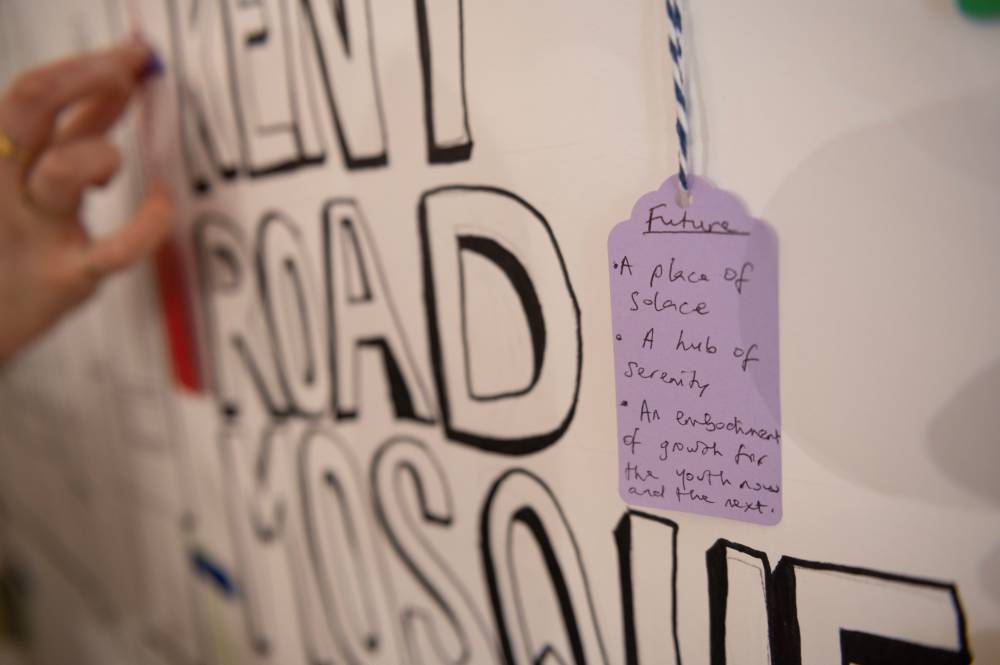 KENT
ROAD
MOSQUE
Future
• A place of
solace
• A hub of
serenity
• An embodiment
of growth for
the youth now
and the next.